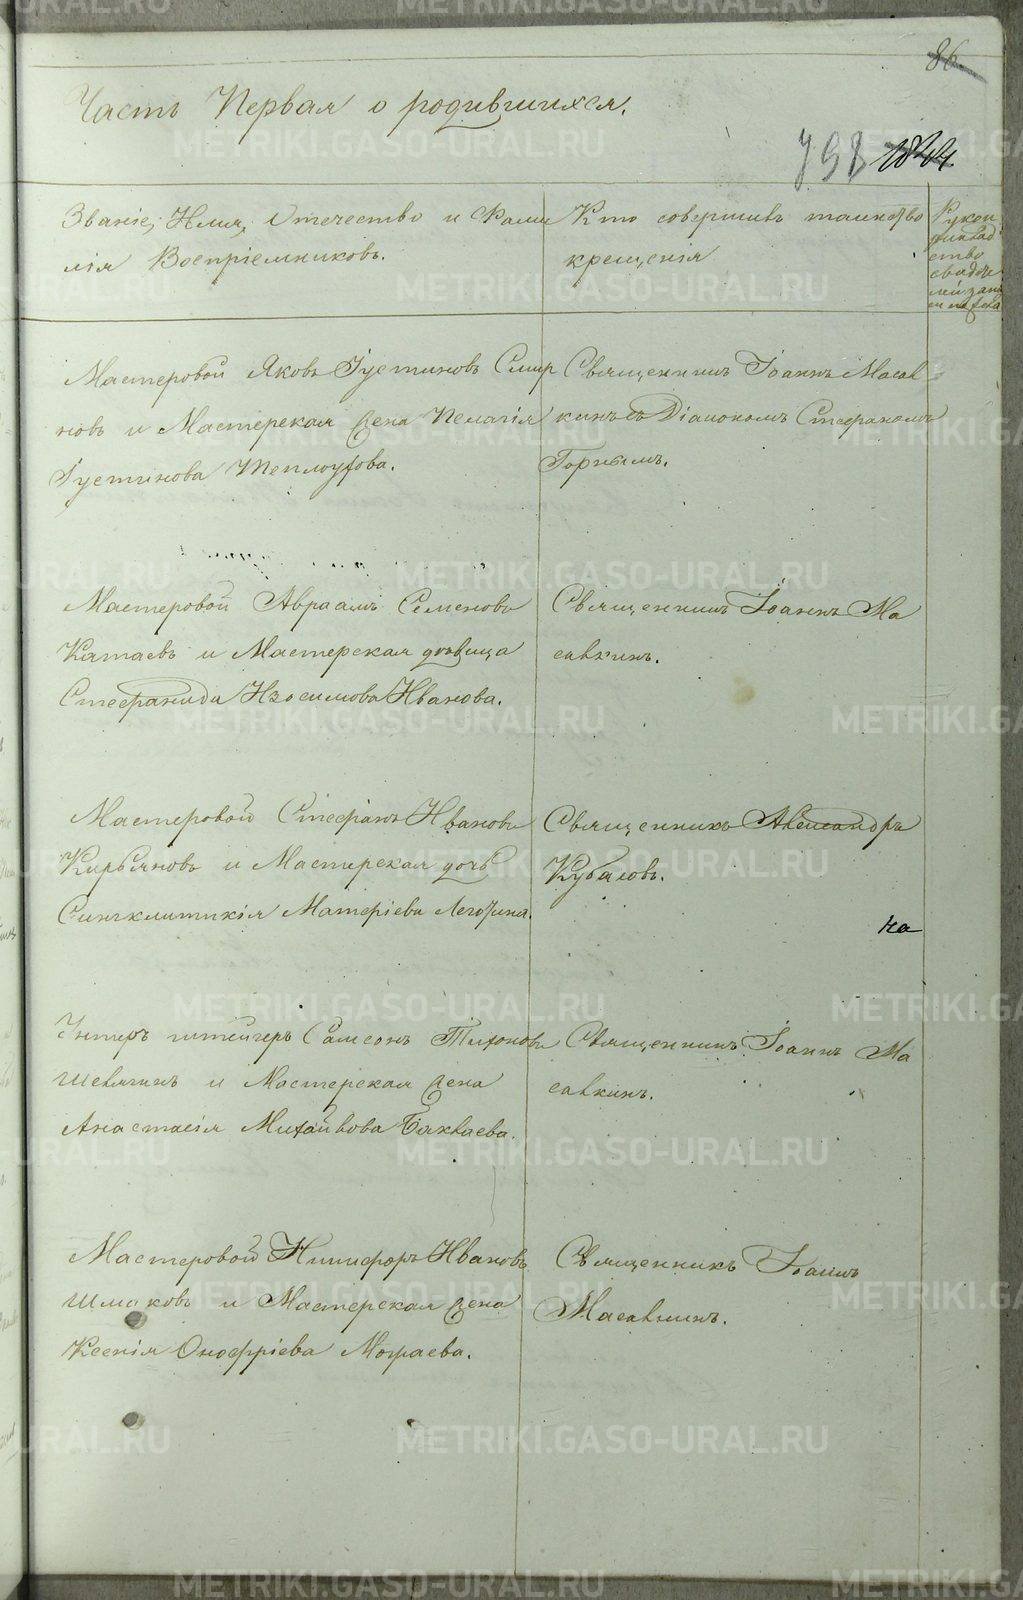 86.
Часть Первая о родившихся.
798 1844.
Званіе, Имя, Отечество и Фами
лія Воспріемниковъ.
Кто совершивъ таинство
крещенія
Рукоп
рикlad
ство
свидѣте
лей запи
си
Мастеровой Яковъ Іустиновъ Смир
новъ и Мастерская жена Пелагія
Іустинова Теплоухова.
Священникъ Іоаннъ Масав
кинъ съ Діакономъ Стефаномъ
Горнымъ.
Мастеровой Авраамъ Семеновъ
Катаевъ и Мастерская дѣвица
Стефанида Изосимова Иванова.
Священникъ Іоаннъ Ма
савкинъ.
Мастеровой Стефанъ Ивановъ
Кирьяновъ и Мастерская дочь
Синклитикія Матѳіева Леготина.
Священникъ Александръ
Кубасовъ.
на
Унтеръ штейгеръ Самсонъ Тихоновъ
Шевягинъ и Мастерская жена
Анастасія Михайлова Баклаева.
Священникъ Іоаннъ Ма
савкинъ.
Мастеровой Никифоръ Ивановъ
Шмаковъ и Мастерская жена
Ксенія Онофріева Мохраева.
Священникъ Іоаннъ
Масавкинъ.
METRIKI.GASO-URAL.RU